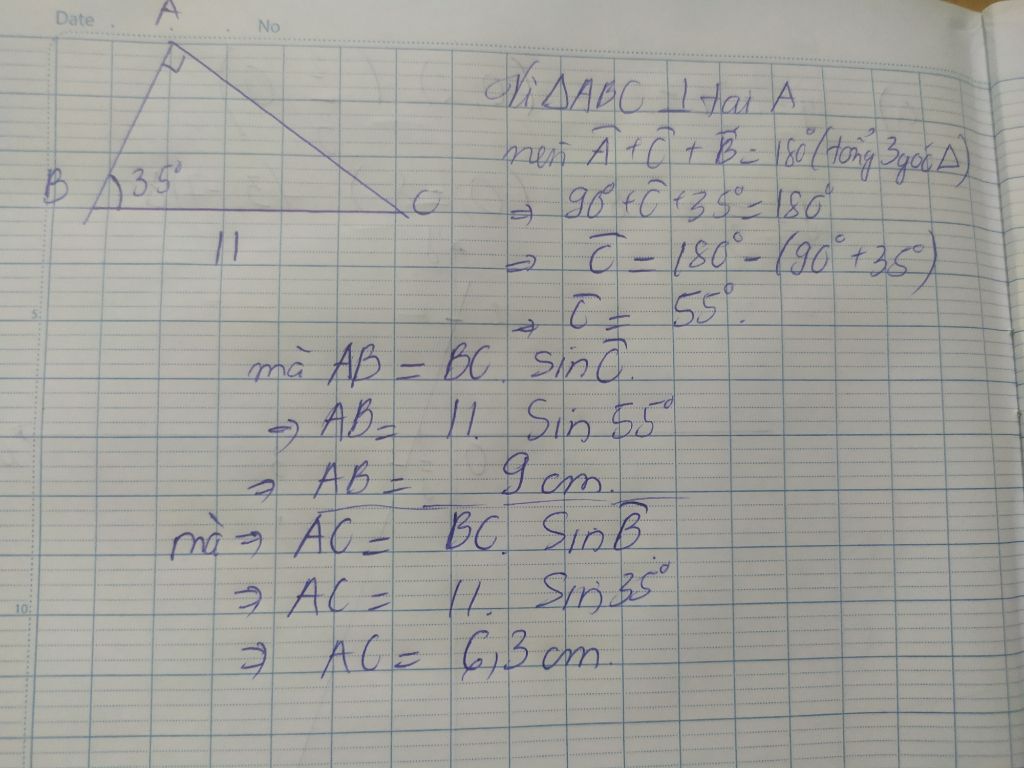 Date . No
A
B 35° C
11
Vì △ABC ⊥ tại A
nên Â + Ĉ + B̂ = 180° (tổng 3 góc △)
⇒ 90° + Ĉ + 35° = 180°
⇒ Ĉ = 180° - (90° + 35°)
⇒ Ĉ = 55°.
mà AB = BC. sin Ĉ.
⇒ AB = 11. Sin 55°
⇒ AB = 9 cm.
mà ⇒ AC = BC. Sin B̂.
⇒ AC = 11. Sin 35°
⇒ AC = 6,3 cm.
5
10